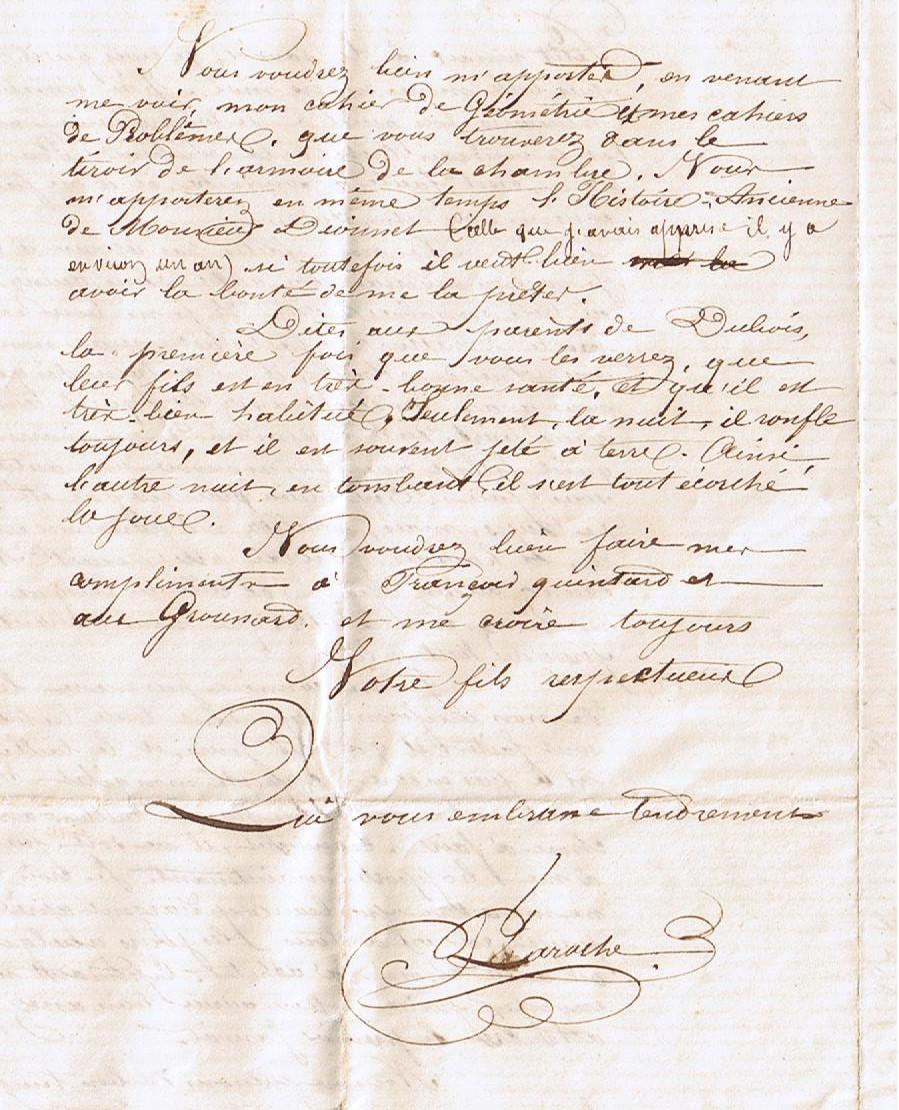 Vous voudrez bien m'apporter, en venant
me voir, mon cahier de Géométrie et mes cahiers
de Problêmes. que vous trouverez dans le
tiroir de l'armoire de la chambre. Vous
m'apporterez en même temps l'Histoire-Ancienne
de Monsieur Dionnet (celle que j'avais apprise il y a
environ un an) si toutefois il veut bien
avoir la bonté de me la prêter.
Dites aux parents de Dubois,
la première fois que vous les verrez, que
leur fils est en très-bonne santé, et qu'il est
très-bien habitué. Seulement, la nuit, il ronfle
toujours, et il est souvent jeté à terre. Ainsi,
l'autre nuit, en tombant, il s'est tout écorché
la joue.
Vous voudrez bien faire mes
compliments à François quintard et
aux Grounard. et me croire toujours
Votre fils respectueux
Qui vous embrasse tendrement
Laroche.